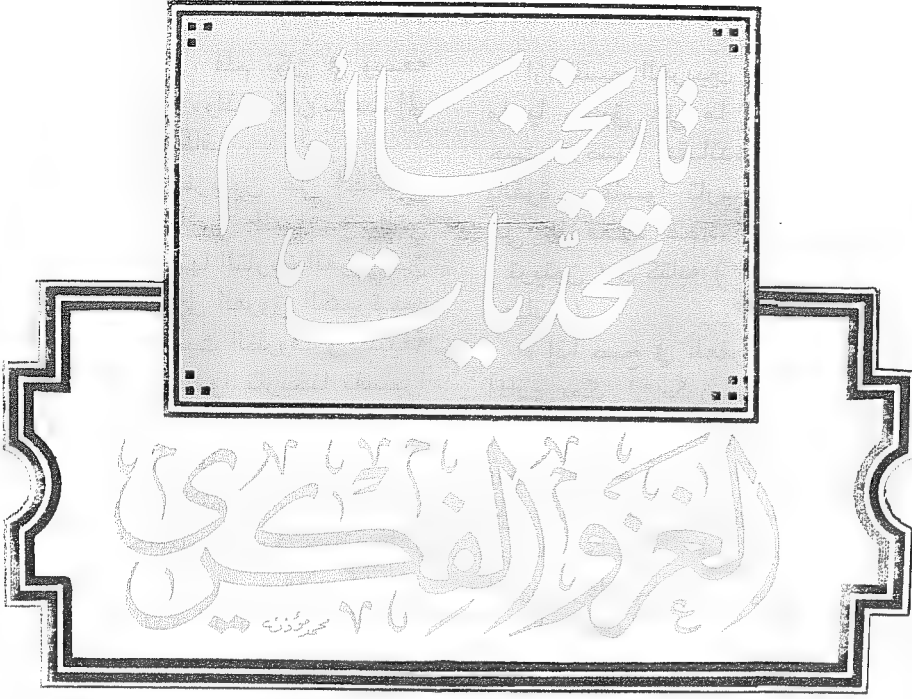 تاريخنا أمام
تحديات
الغزو الفكري